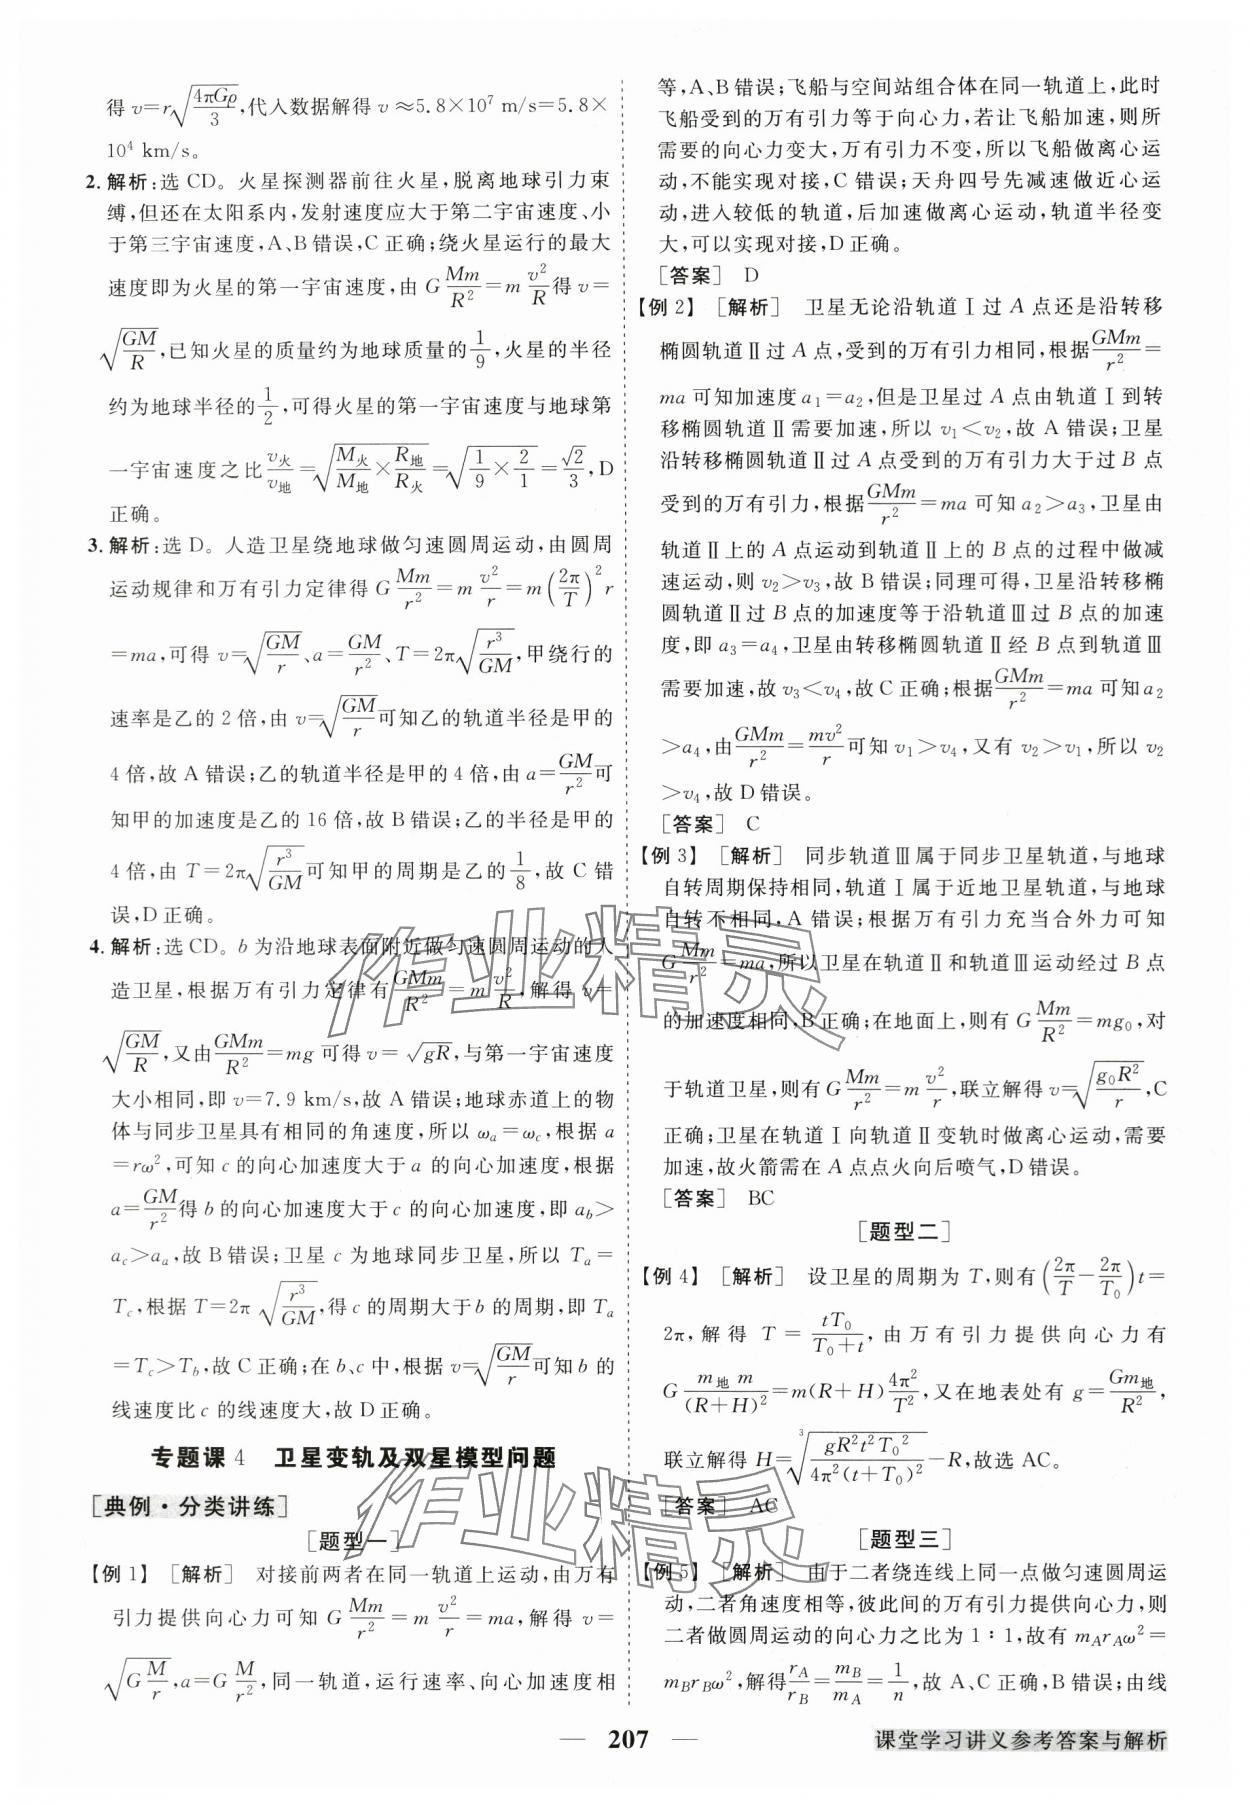 得 v=r√(4πGρ/3),代入数据解得 v≈5.8×10⁷ m/s=5.8×
10⁴ km/s。
2. 解析:选 CD。火星探测器前往火星,脱离地球引力束
缚,但还在太阳系内,发射速度应大于第二宇宙速度、小
于第三宇宙速度,A、B 错误,C 正确;绕火星运行的最大
速度即为火星的第一宇宙速度,由 G Mm/R²=m v²/R 得 v=
√(GM/R),已知火星的质量约为地球质量的 1/9,火星的半径
约为地球半径的 1/2,可得火星的第一宇宙速度与地球第
一宇宙速度之比 v火/v地=√(M火/M地×R地/R火)=√(1/9×2/1)=√2/3,D
正确。
3. 解析:选 D。人造卫星绕地球做匀速圆周运动,由圆周
运动规律和万有引力定律得 G Mm/r²=m v²/r=m(2π/T)²r
=ma,可得 v=√(GM/r)、a=GM/r²、T=2π√(r³/GM),甲绕行的
速率是乙的 2 倍,由 v=√(GM/r)可知乙的轨道半径是甲的
4 倍,故 A 错误;乙的轨道半径是甲的 4 倍,由 a=GM/r²可
知甲的加速度是乙的 16 倍,故 B 错误;乙的半径是甲的
4 倍,由 T=2π√(r³/GM)可知甲的周期是乙的 1/8,故 C 错
误,D 正确。
4. 解析:选 CD。b 为沿地球表面附近做匀速圆周运动的人
造卫星,根据万有引力定律有 GMm/R²=m v²/R,解得 v=
√(GM/R),又由 GMm/R²=mg 可得 v=√gR,与第一宇宙速度
大小相同,即 v=7.9 km/s,故 A 错误;地球赤道上的物
体与同步卫星具有相同的角速度,所以 ωa=ωc,根据 a
=rω²,可知 c 的向心加速度大于 a 的向心加速度,根据
a=GM/r²得 b 的向心加速度大于 c 的向心加速度,即 ab>
ac>aa,故 B 错误;卫星 c 为地球同步卫星,所以 Ta=
Tc,根据 T=2π√(r³/GM),得 c 的周期大于 b 的周期,即 Ta
=Tc>Tb,故 C 正确;在 b、c 中,根据 v=√(GM/r)可知 b 的
线速度比 c 的线速度大,故 D 正确。
专题课 4 卫星变轨及双星模型问题
[典例·分类讲练]
[题型一]
【例 1】 [解析] 对接前两者在同一轨道上运动,由万有
引力提供向心力可知 G Mm/r²=m v²/r=ma,解得 v=
√(G M/r),a=G M/r²,同一轨道,运行速率、向心加速度相
等,A、B 错误;飞船与空间站组合体在同一轨道上,此时
飞船受到的万有引力等于向心力,若让飞船加速,则所
需要的向心力变大,万有引力不变,所以飞船做离心运
动,不能实现对接,C 错误;天舟四号先减速做近心运
动,进入较低的轨道,后加速做离心运动,轨道半径变
大,可以实现对接,D 正确。
[答案] D
【例 2】 [解析] 卫星无论沿轨道Ⅰ过 A 点还是沿转移
椭圆轨道Ⅱ过 A 点,受到的万有引力相同,根据 GMm/r²=
ma 可知加速度 a₁=a₂,但是卫星过 A 点由轨道Ⅰ到转
移椭圆轨道Ⅱ需要加速,所以 v₁<v₂,故 A 错误;卫星
沿转移椭圆轨道Ⅱ过 A 点受到的万有引力大于过 B 点
受到的万有引力,根据 GMm/r²=ma 可知 a₂>a₃,卫星由
轨道Ⅱ上的 A 点运动到轨道Ⅱ上的 B 点的过程中做减
速运动,则 v₂>v₃,故 B 错误;同理可得,卫星沿转移椭
圆轨道Ⅱ过 B 点的加速度等于沿轨道Ⅲ过 B 点的加速
度,即 a₃=a₄,卫星由转移椭圆轨道Ⅱ经 B 点到轨道Ⅲ
需要加速,故 v₃<v₄,故 C 正确;根据 GMm/r²=ma 可知 a₂
>a₄,由 GMm/r²=mv²/r 可知 v₁>v₄,又有 v₂>v₁,所以 v₂
>v₄,故 D 错误。
[答案] C
【例 3】 [解析] 同步轨道Ⅲ属于同步卫星轨道,与地球
自转周期保持相同,轨道Ⅰ属于近地卫星轨道,与地球
自转不相同,A 错误;根据万有引力充当合外力可知
G Mm/r²=ma,所以卫星在轨道Ⅱ和轨道Ⅲ运动经过 B 点
的加速度相同,B 正确;在地面上,则有 G Mm/R²=mg₀,对
于轨道卫星,则有 G Mm/r²=m v²/r,联立解得 v=√(g₀R²/r),C
正确;卫星在轨道Ⅰ向轨道Ⅱ变轨时做离心运动,需要
加速,故火箭需在 A 点点火向后喷气,D 错误。
[答案] BC
[题型二]
【例 4】 [解析] 设卫星的周期为 T,则有(2π/T−2π/T₀)t=
2π,解得 T=tT₀/(T₀+t),由万有引力提供向心力有
G m地m/(R+H)²=m(R+H)4π²/T²,又在地表处有 g=Gm地/R²,
联立解得 H=³√(gR²t²T₀²/4π²(t+T₀)²)−R,故选 AC。
[答案] AC
[题型三]
【例 5】 [解析] 由于二者绕连线上同一点做匀速圆周运
动,二者角速度相等,彼此间的万有引力提供向心力,则
二者做圆周运动的向心力之比为 1∶1,故有 mArAω²=
mBrBω²,解得 rA/rB=mB/mA=1/n,故 A、C 正确,B 错误;由线
207
课堂学习讲义参考答案与解析
作业精灵
作业精灵